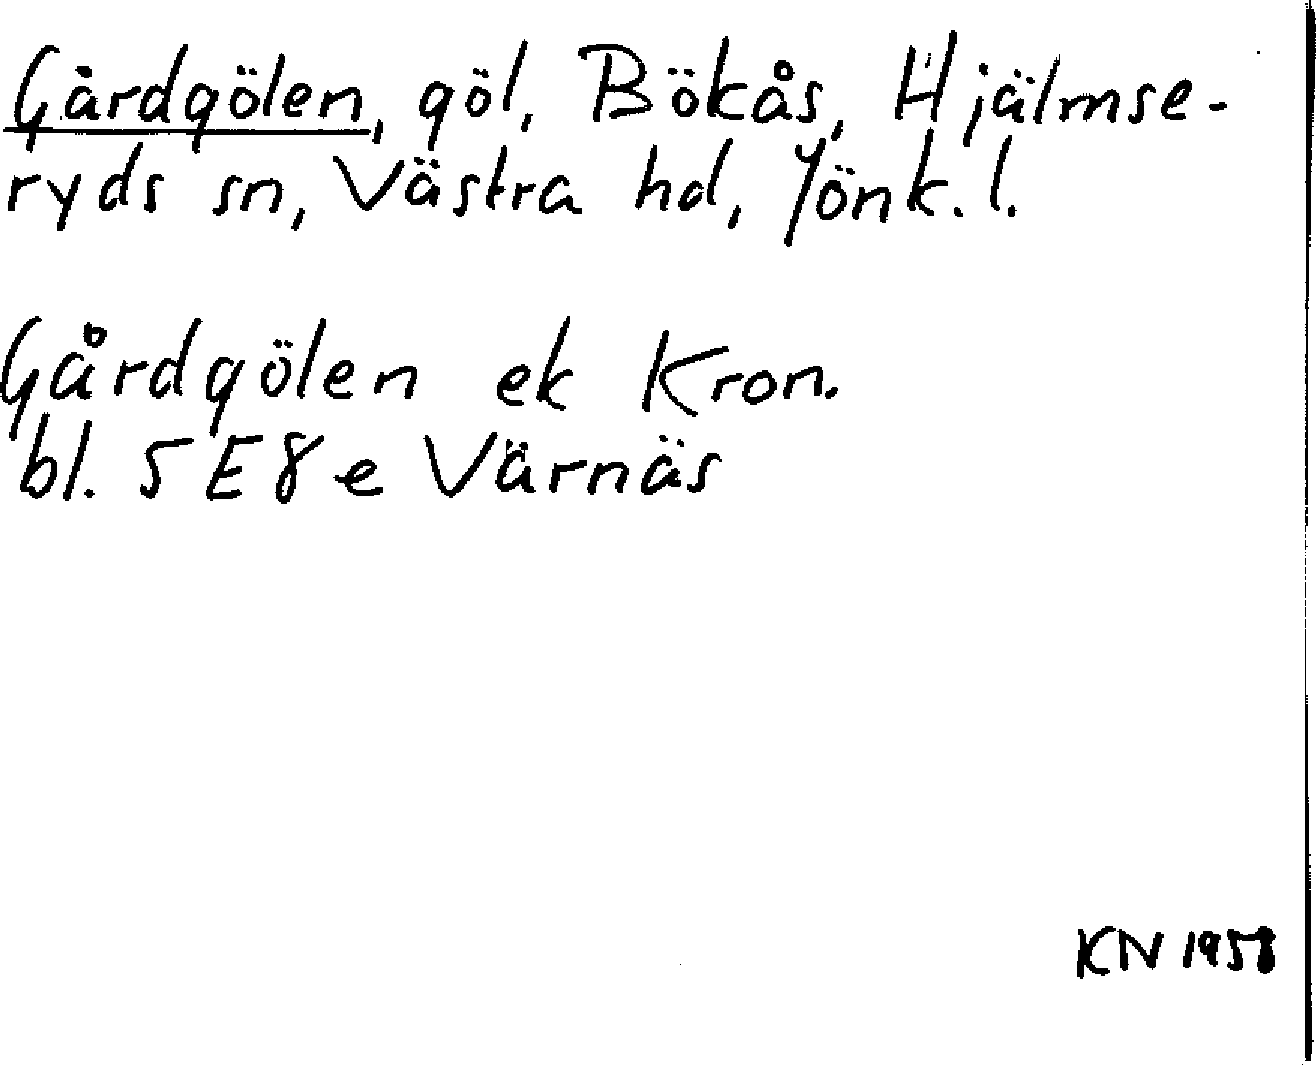 Gårdgölen, göl, Bökås, Hjälmse-
ryds sn, Västra hd, Jönk. l.
Gårdgölen ek Kron.
bl. 5 E 8 e Värnäs
KN 1958